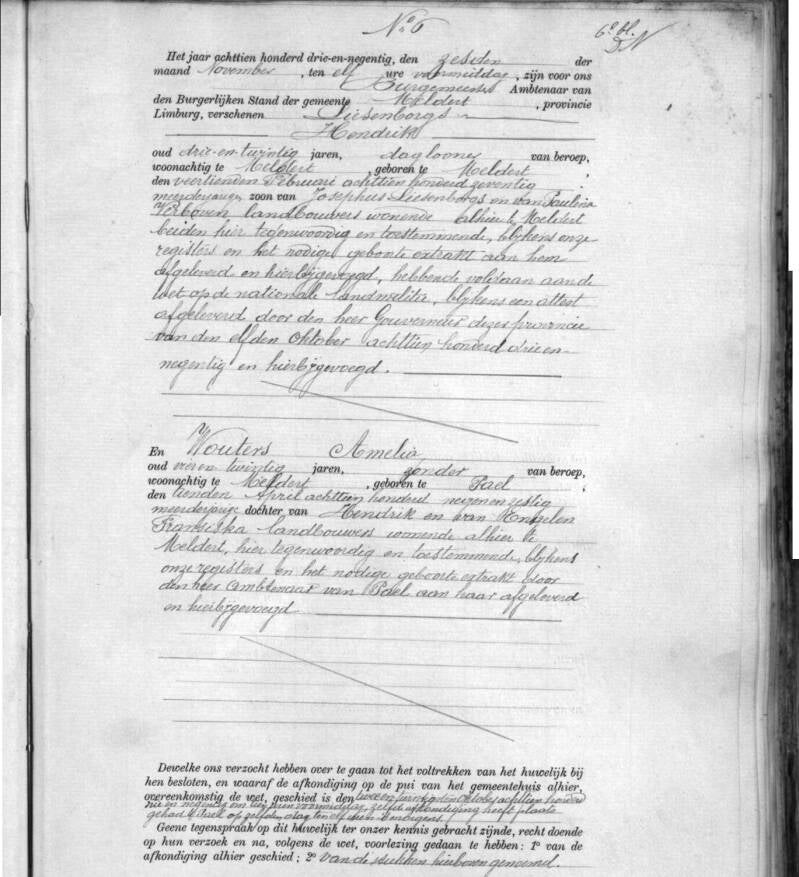 No 6
6e bl.
Het jaar achttien honderd drie-en-negentig, den zesden der
maand November, ten elf ure voormiddag, zijn voor ons
Burgemeester Ambtenaar van
den Burgerlijken Stand der gemeente Meldert, provincie
Limburg, verschenen Liesenborgs
Hendrik
oud drie-en-twintig jaren, daglooner van beroep,
woonachtig te Meldert, geboren te Meldert,
den veertienden Februari achttien honderd zeventig
meerderjarige zoon van Josephus Liesenborgs en van Paulina
Verboven landbouwers wonende alhier te Meldert
beiden hier tegenwoordig en toestemmende, blijkens onze
registers en het nodige geboorte extrakt aan hem
afgeleverd en hierbijgevoegd, hebbende voldaan aan de
wet op de nationale landmilitie, blijkens een attest
afgeleverd door den heer Gouverneur dezer provincie
van den elfden Oktober achttien honderd drie en
negentig en hierbijgevoegd.
En Wouters Amelia,
oud vier en twintig jaren, zonder van beroep,
woonachtig te Meldert, geboren te Pael,
den tienden April achttien honderd negen en zestig
meerderjarige dochter van Hendrik en van Engelen
Franciska landbouwers wonende alhier te
Meldert, hier tegenwoordig en toestemmende, blijkens
onze registers en het nodige geboorte extrakt door
den heer Ambtenaar van Pael aan haar afgeleverd
en hierbijgevoegd
Dewelke ons verzocht hebben over te gaan tot het voltrekken van het huwelijk bij
hen besloten, en waaraf de afkondiging op de pui van het gemeentehuis alhier,
overeenkomstig de wet, geschied is den twee en twintigsten Oktober achttien honderd
drie en negentig om tien uren voormiddag, zelfde afkondiging heeft plaats
gehad te Pael op zelfden dag ten elf uren 's morgens
Geene tegenspraak op dit huwelijk ter onzer kennis gebracht zijnde, recht doende
op hun verzoek en na, volgens de wet, voorlezing gedaan te hebben : 1o van de
afkondiging alhier geschied ; 2o van de stukken hierboven genoemd.